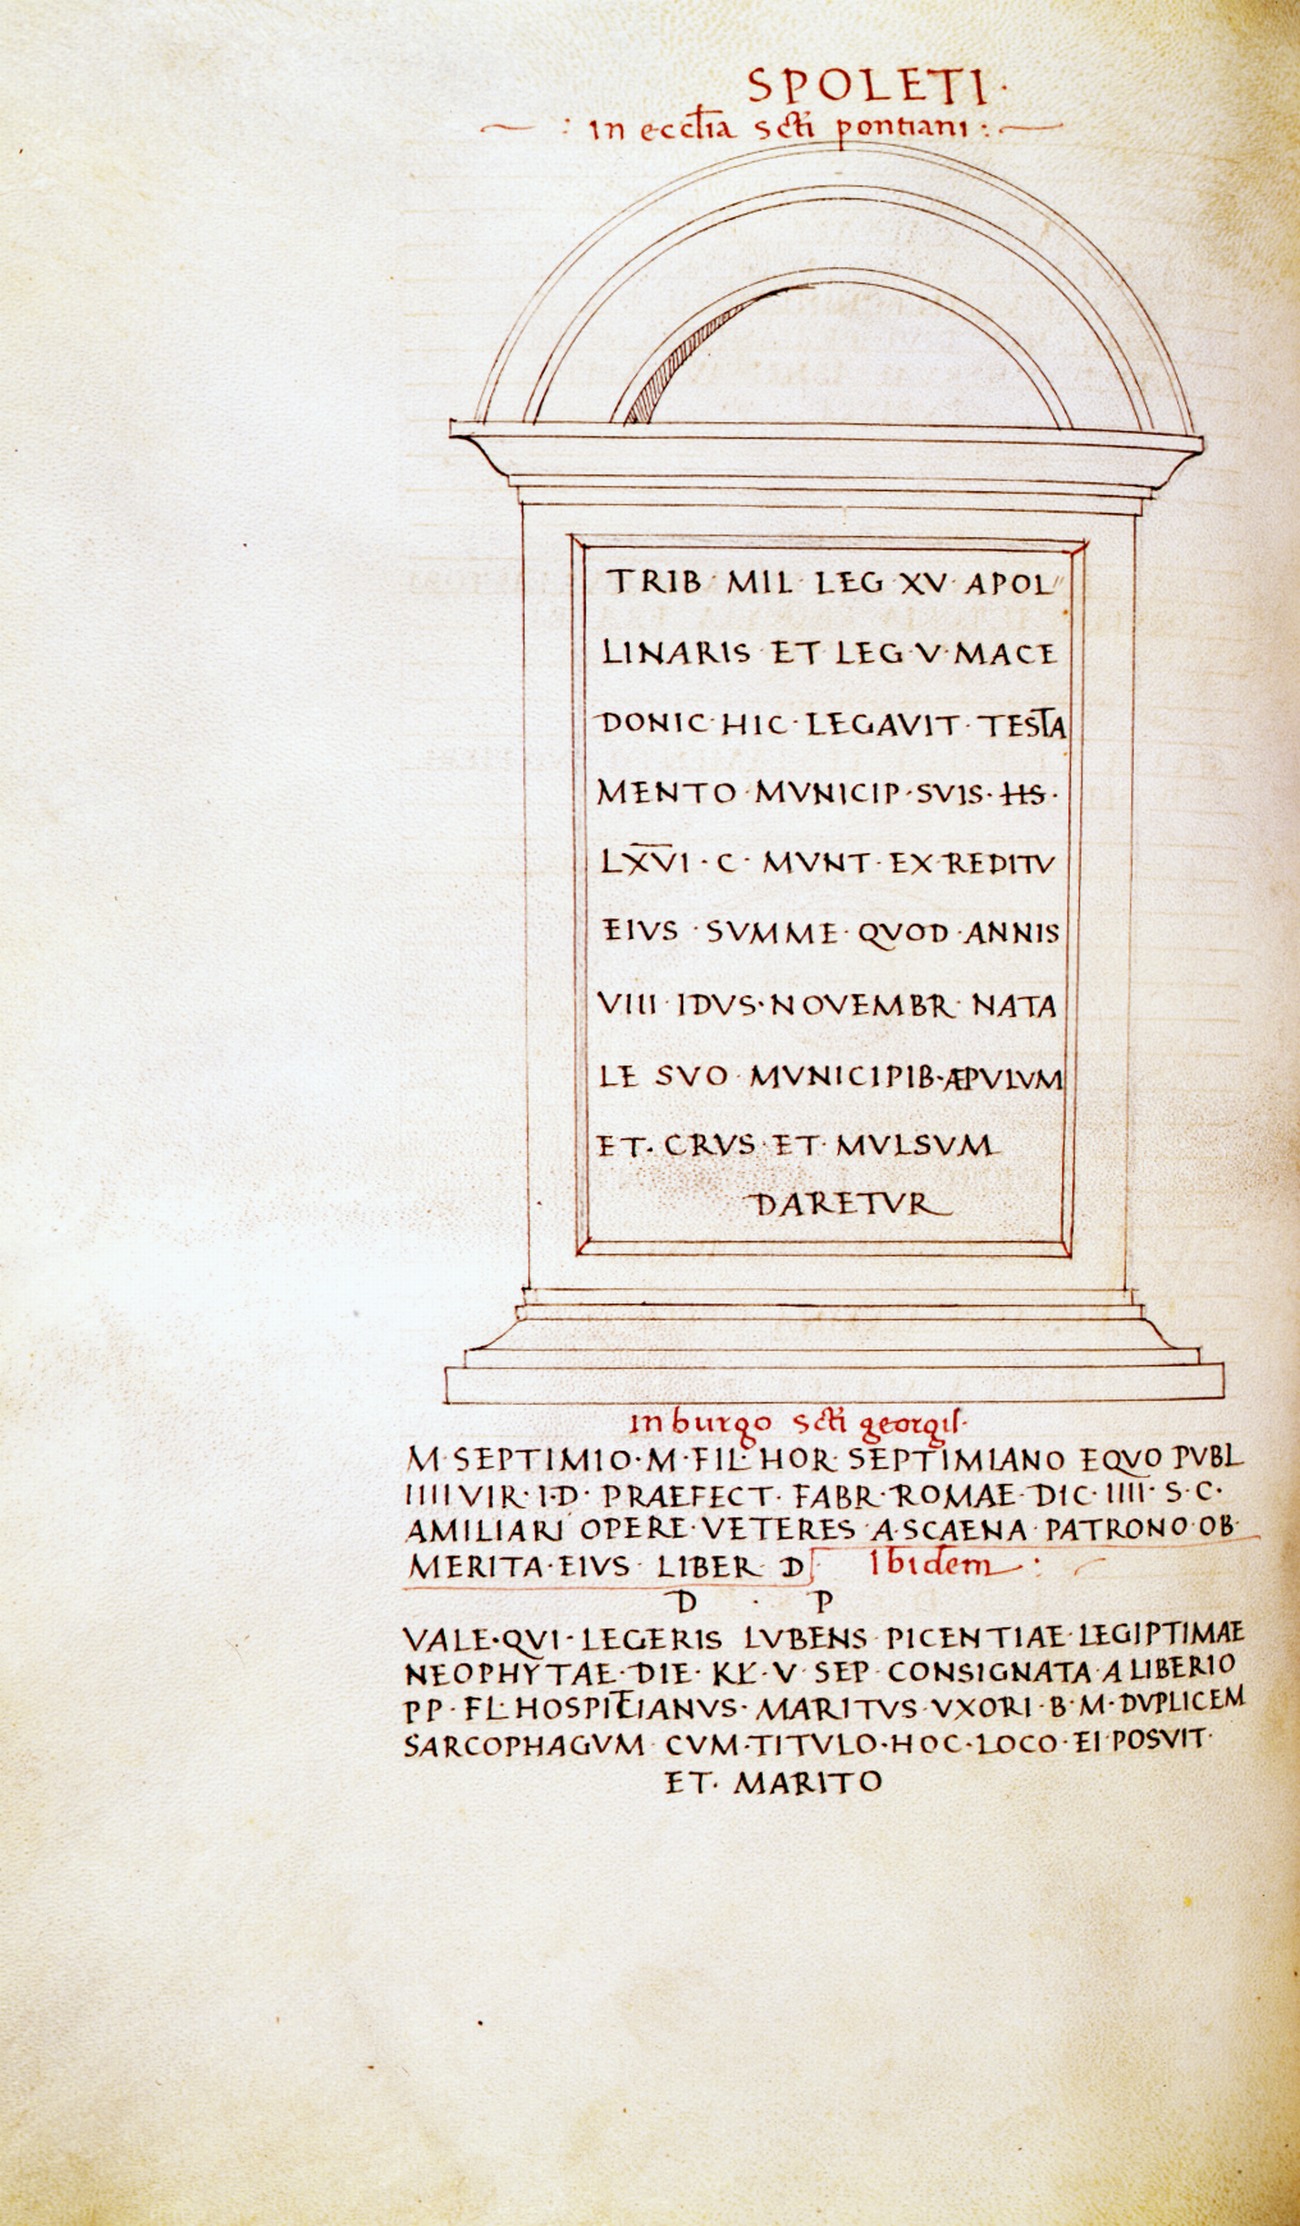 SPOLETI·
: in eccl̄ia sc̄ti pontiani :
TRIB· MIL· LEG XV· APOL
LINARIS ET LEG·V·MACE
DONIC·HIC·LEGAVIT·TESTA
MENTO·MVNICIP·SVIS·HS·
LX̅V̅I·C·MVNT·EX·REDITV
EIVS·SVMME·QVOD·ANNIS
VIII IDVS·NOVEMBR·NATA
LE SVO·MVNICIPIB·ÆPVLVM
ET·CRVS·ET·MVLSVM
DARETVR
in burgo sc̄ti georgii·
M·SEPTIMIO·M·FIL·HOR·SEPTIMIANO EQVO PVBL
IIIIVIR·I·D·PRAEFECT·FABR·ROMAE·DIC·IIII·S·C·
AMILIARI OPERE·VETERES·A·SCAENA·PATRONO·OB·
MERITA·EIVS·LIBER D Ibidem :
D · P
VALE·QVI·LEGERIS LVBENS·PICENTIAE·LEGIPTIMAE
NEOPHYTAE·DIE·KL·V·SEP·CONSIGNATA·A LIBERIO
PP·FL·HOSPITIANVS·MARITVS·VXORI·B·M·DVPLICEM
SARCOPHAGVM·CVM·TITVLO·HOC·LOCO·EI·POSVIT·
ET·MARITO